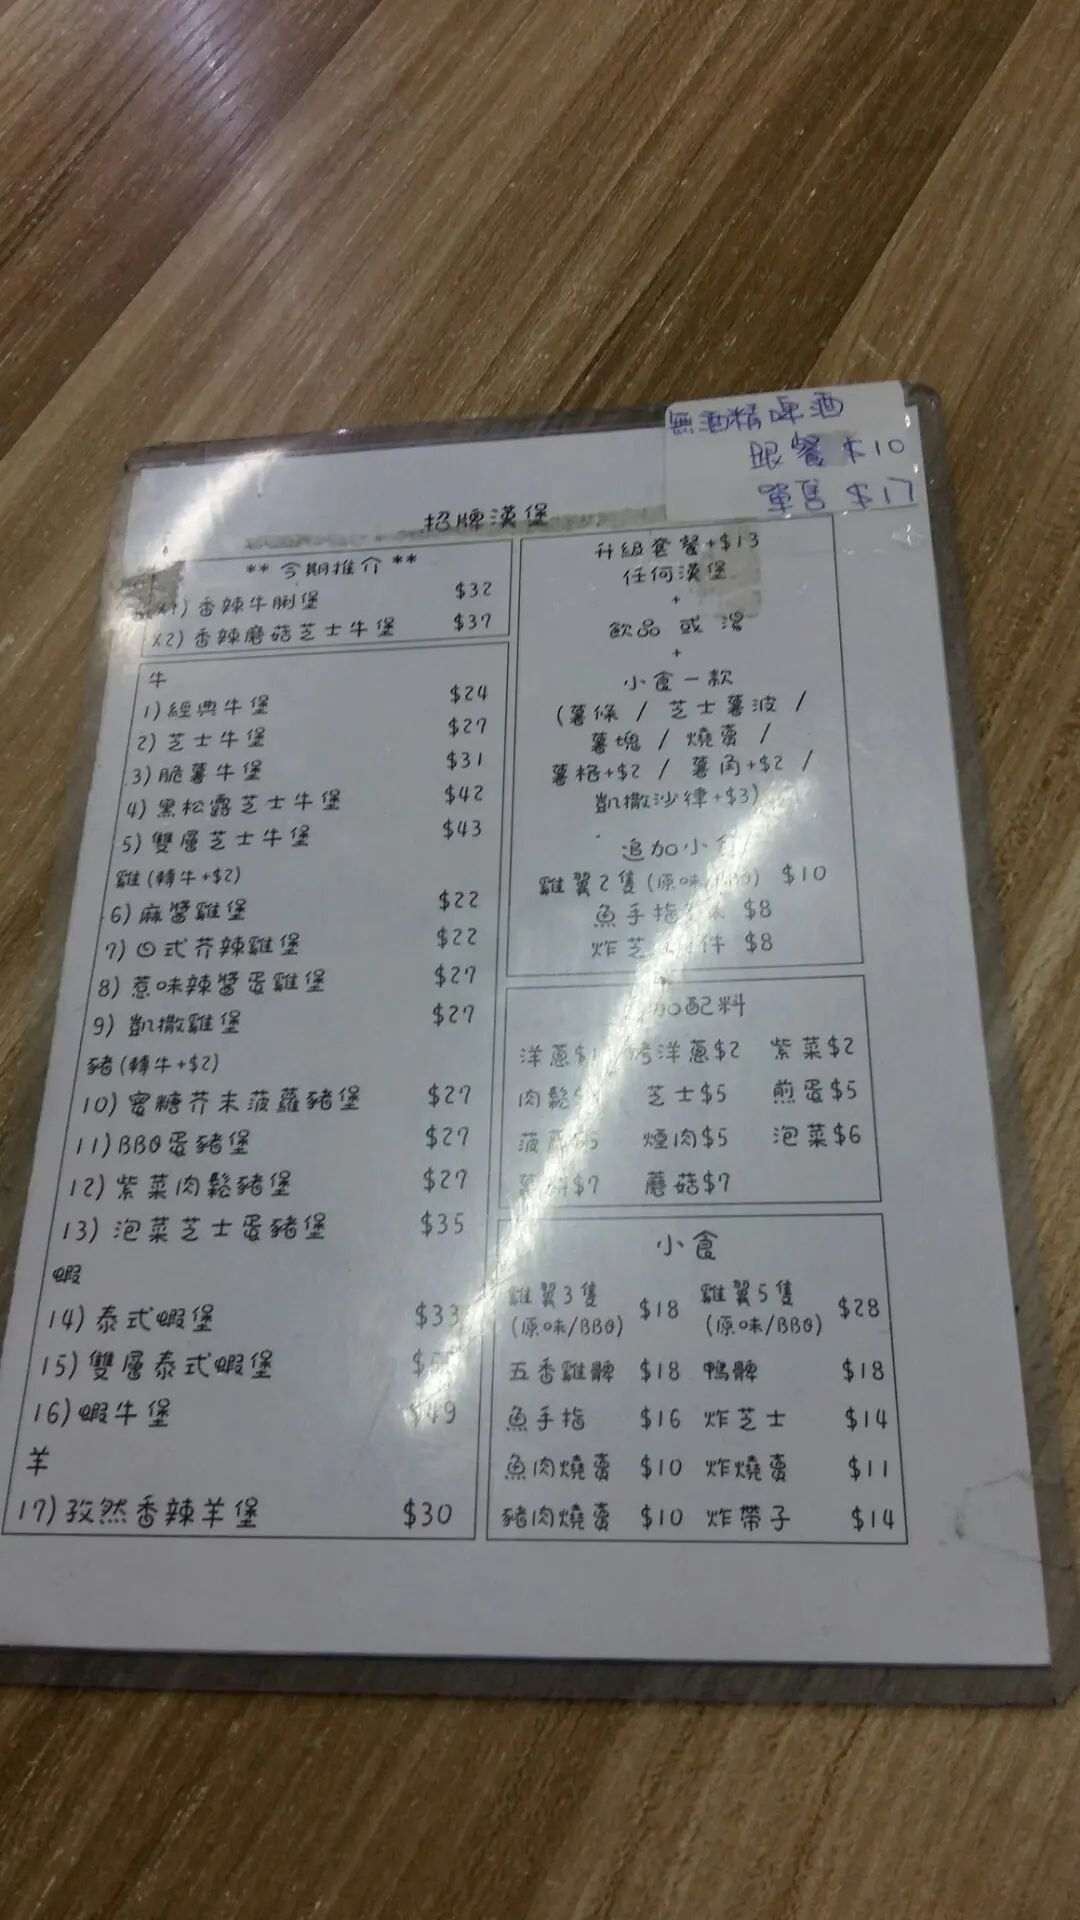 無酒精啤酒
跟餐 $10
單售 $17
招牌漢堡
** 今期推介 **
X1) 香辣牛脷堡 $32
X2) 香辣磨菇芝士牛堡 $37
牛
1) 經典牛堡 $24
2) 芝士牛堡 $27
3) 脆薯牛堡 $31
4) 黑松露芝士牛堡 $42
5) 雙層芝士牛堡 $43
雞 (轉牛+$2)
6) 麻醬雞堡 $22
7) 日式芥辣雞堡 $22
8) 惹味辣醬蛋雞堡 $27
9) 凱撒雞堡 $27
豬 (轉牛+$2)
10) 蜜糖芥末菠蘿豬堡 $27
11) BBQ蛋豬堡 $27
12) 紫菜肉鬆豬堡 $27
13) 泡菜芝士蛋豬堡 $35
蝦
14) 泰式蝦堡 $33
15) 雙層泰式蝦堡
16) 蝦牛堡 $49
羊
17) 孜然香辣羊堡 $30
升級套餐+$13
任何漢堡
+
飲品 或 湯
+
小食一款
(薯條 / 芝士薯波 /
薯塊 / 燒賣 /
薯格+$2 / 薯角+$2 /
凱撒沙律+$3)
追加小食
雞翼2隻 (原味/BBQ) $10
魚手指 $8
炸芝 件 $8
加配料
洋蔥 烤洋蔥$2 紫菜$2
肉鬆 芝士$5 煎蛋$5
菠 煙肉$5 泡菜$6
薯餅$7 蘑菇$7
小食
雞翼3隻 $18 雞翼5隻 $28
(原味/BBQ) (原味/BBQ)
五香雞髀 $18 鴨髀 $18
魚手指 $16 炸芝士 $14
魚肉燒賣 $10 炸燒賣 $11
豬肉燒賣 $10 炸帶子 $14